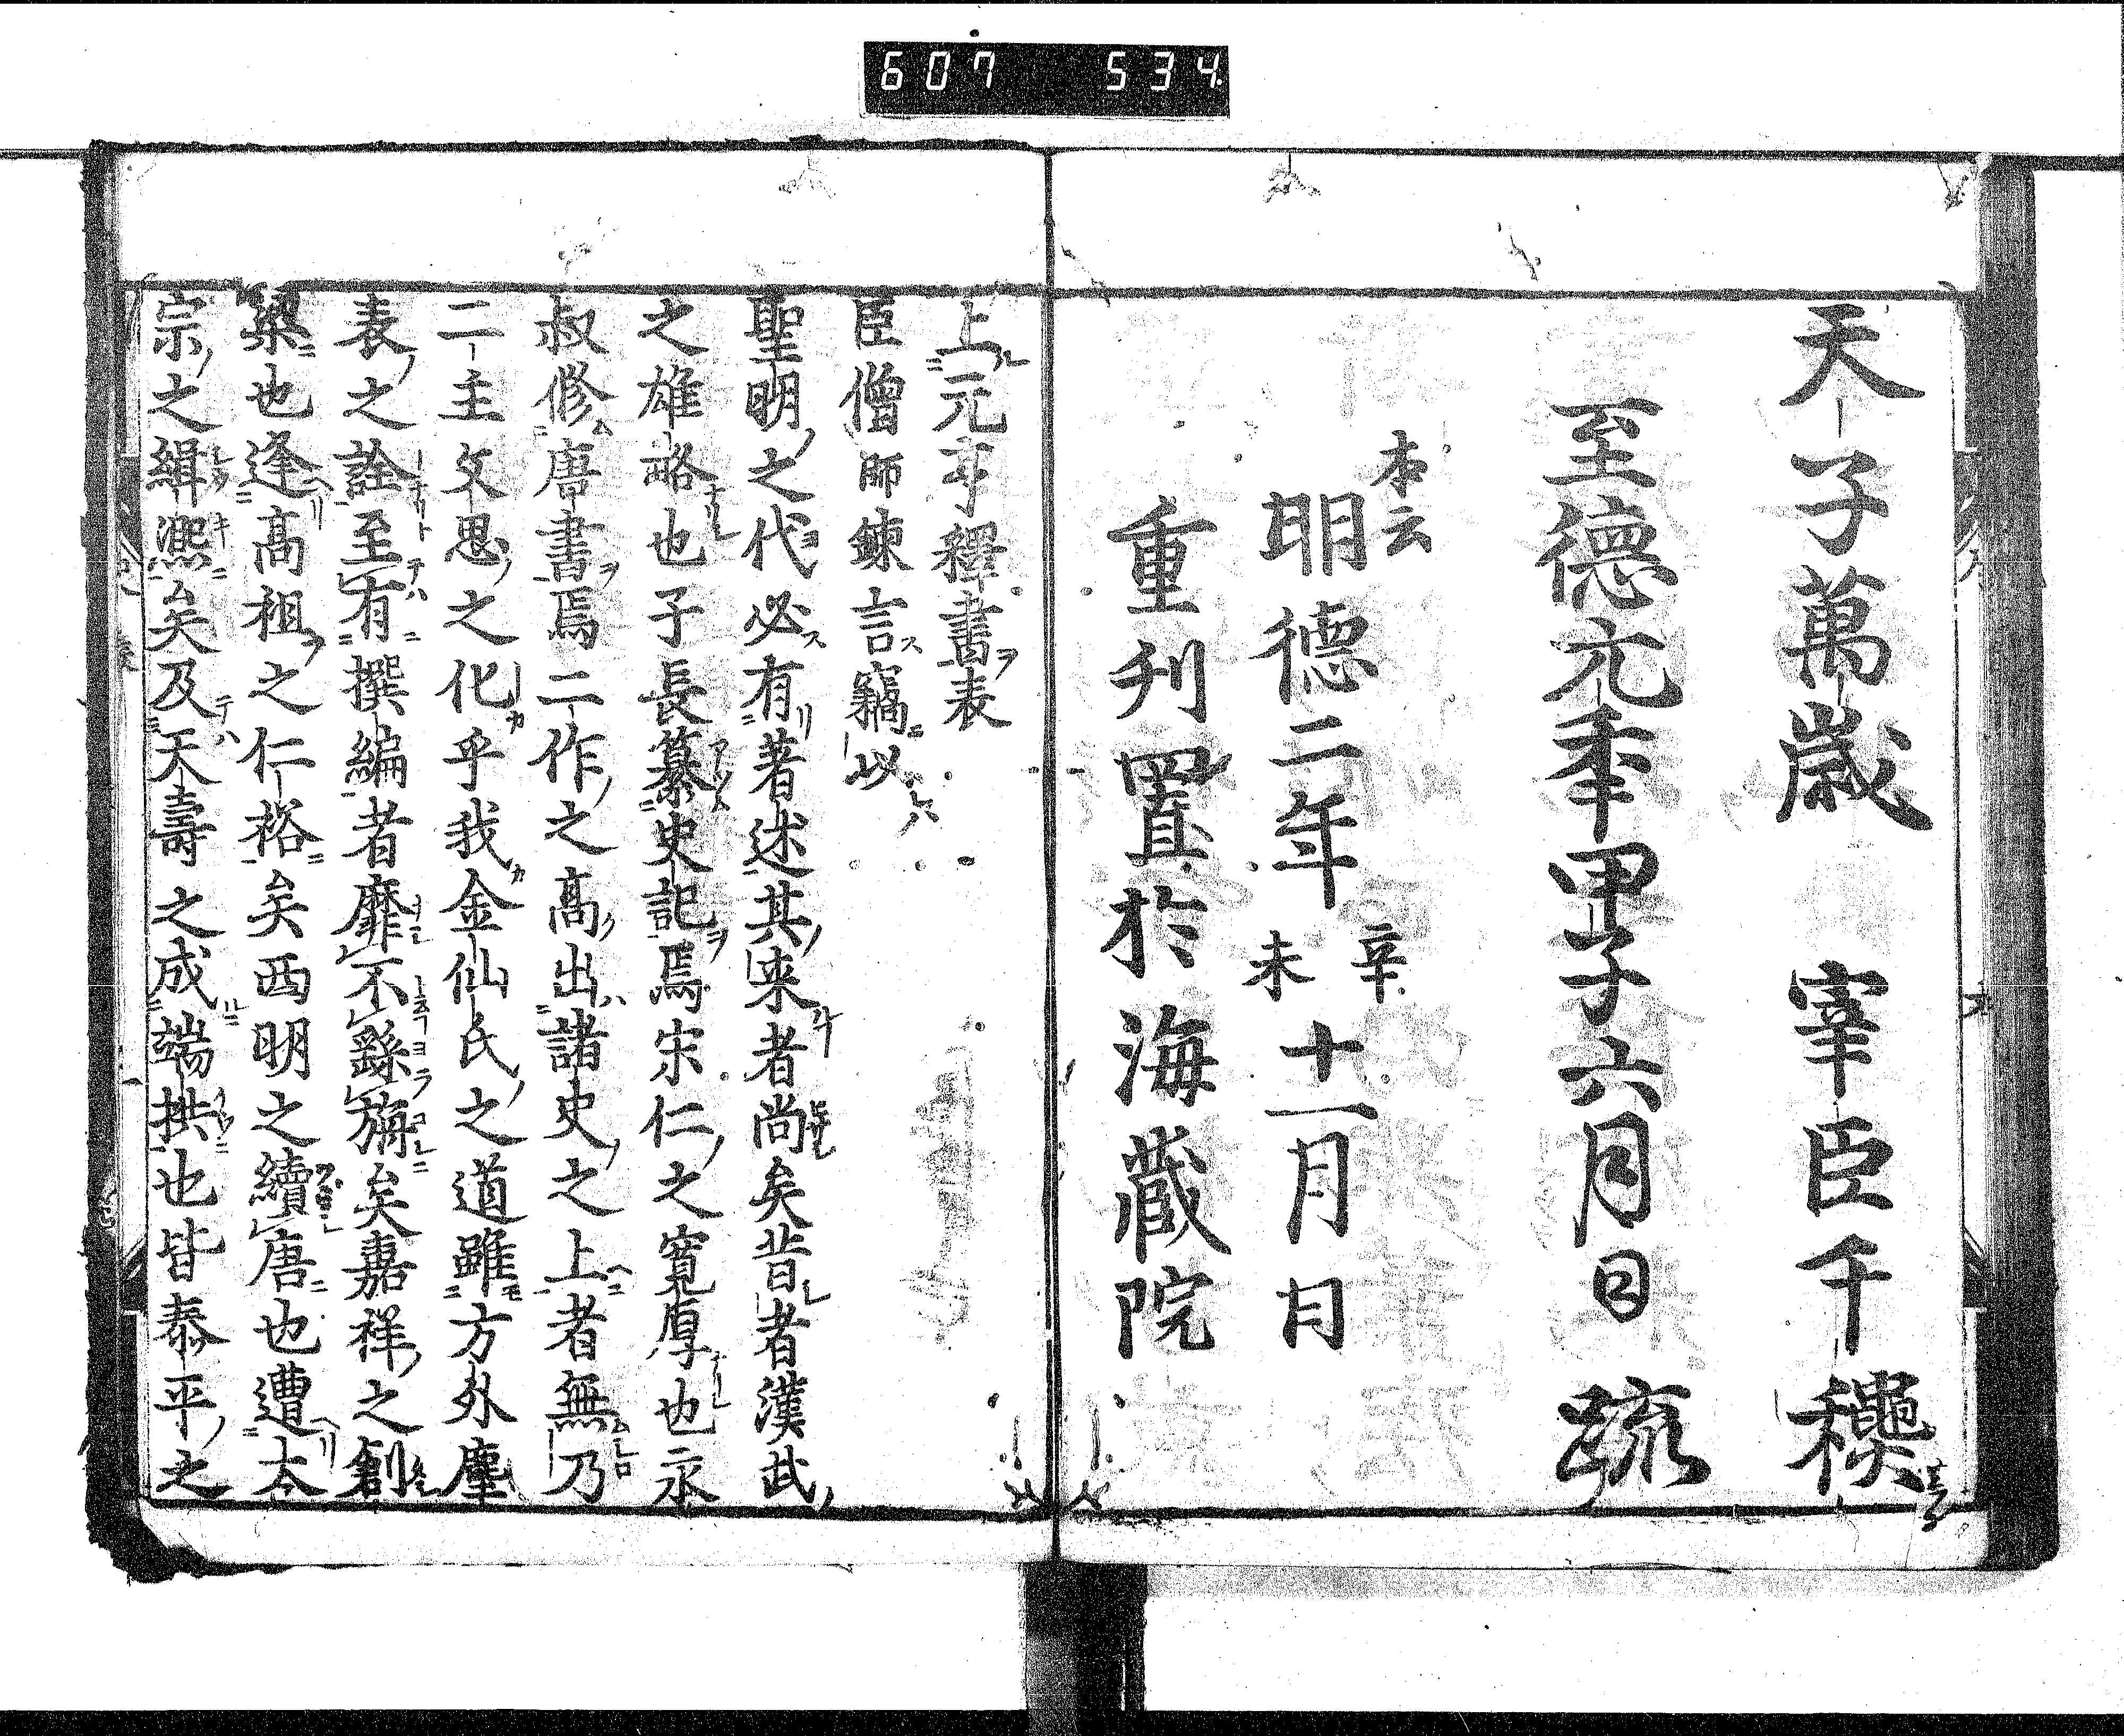 607 534
天子萬歲 宰臣千穐
至德元秊甲子六月日 疏
本云
明德二年辛未十一月日
重刋置於海蔵院
上元亨釋書表
臣僧師鍊言竊以
聖明之代必有著述其来者尚矣昔者漢武
之雄略也子長纂史記焉宋仁之寛厚也永
叔修唐書焉二作之高出諸史之上者無乃
二主文思之化乎我金仙氏之道雖方外塵
表之詮至有撰編者靡不繇旃矣嘉祥之創
梁也逢高祖之仁裕矣西明之續唐也遭太
宗之緝凞矣及天壽之成端拱也皆泰平之